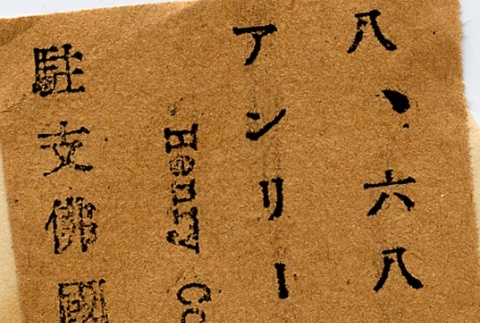 八、六八
アンリー
Henry Co
駐支佛國